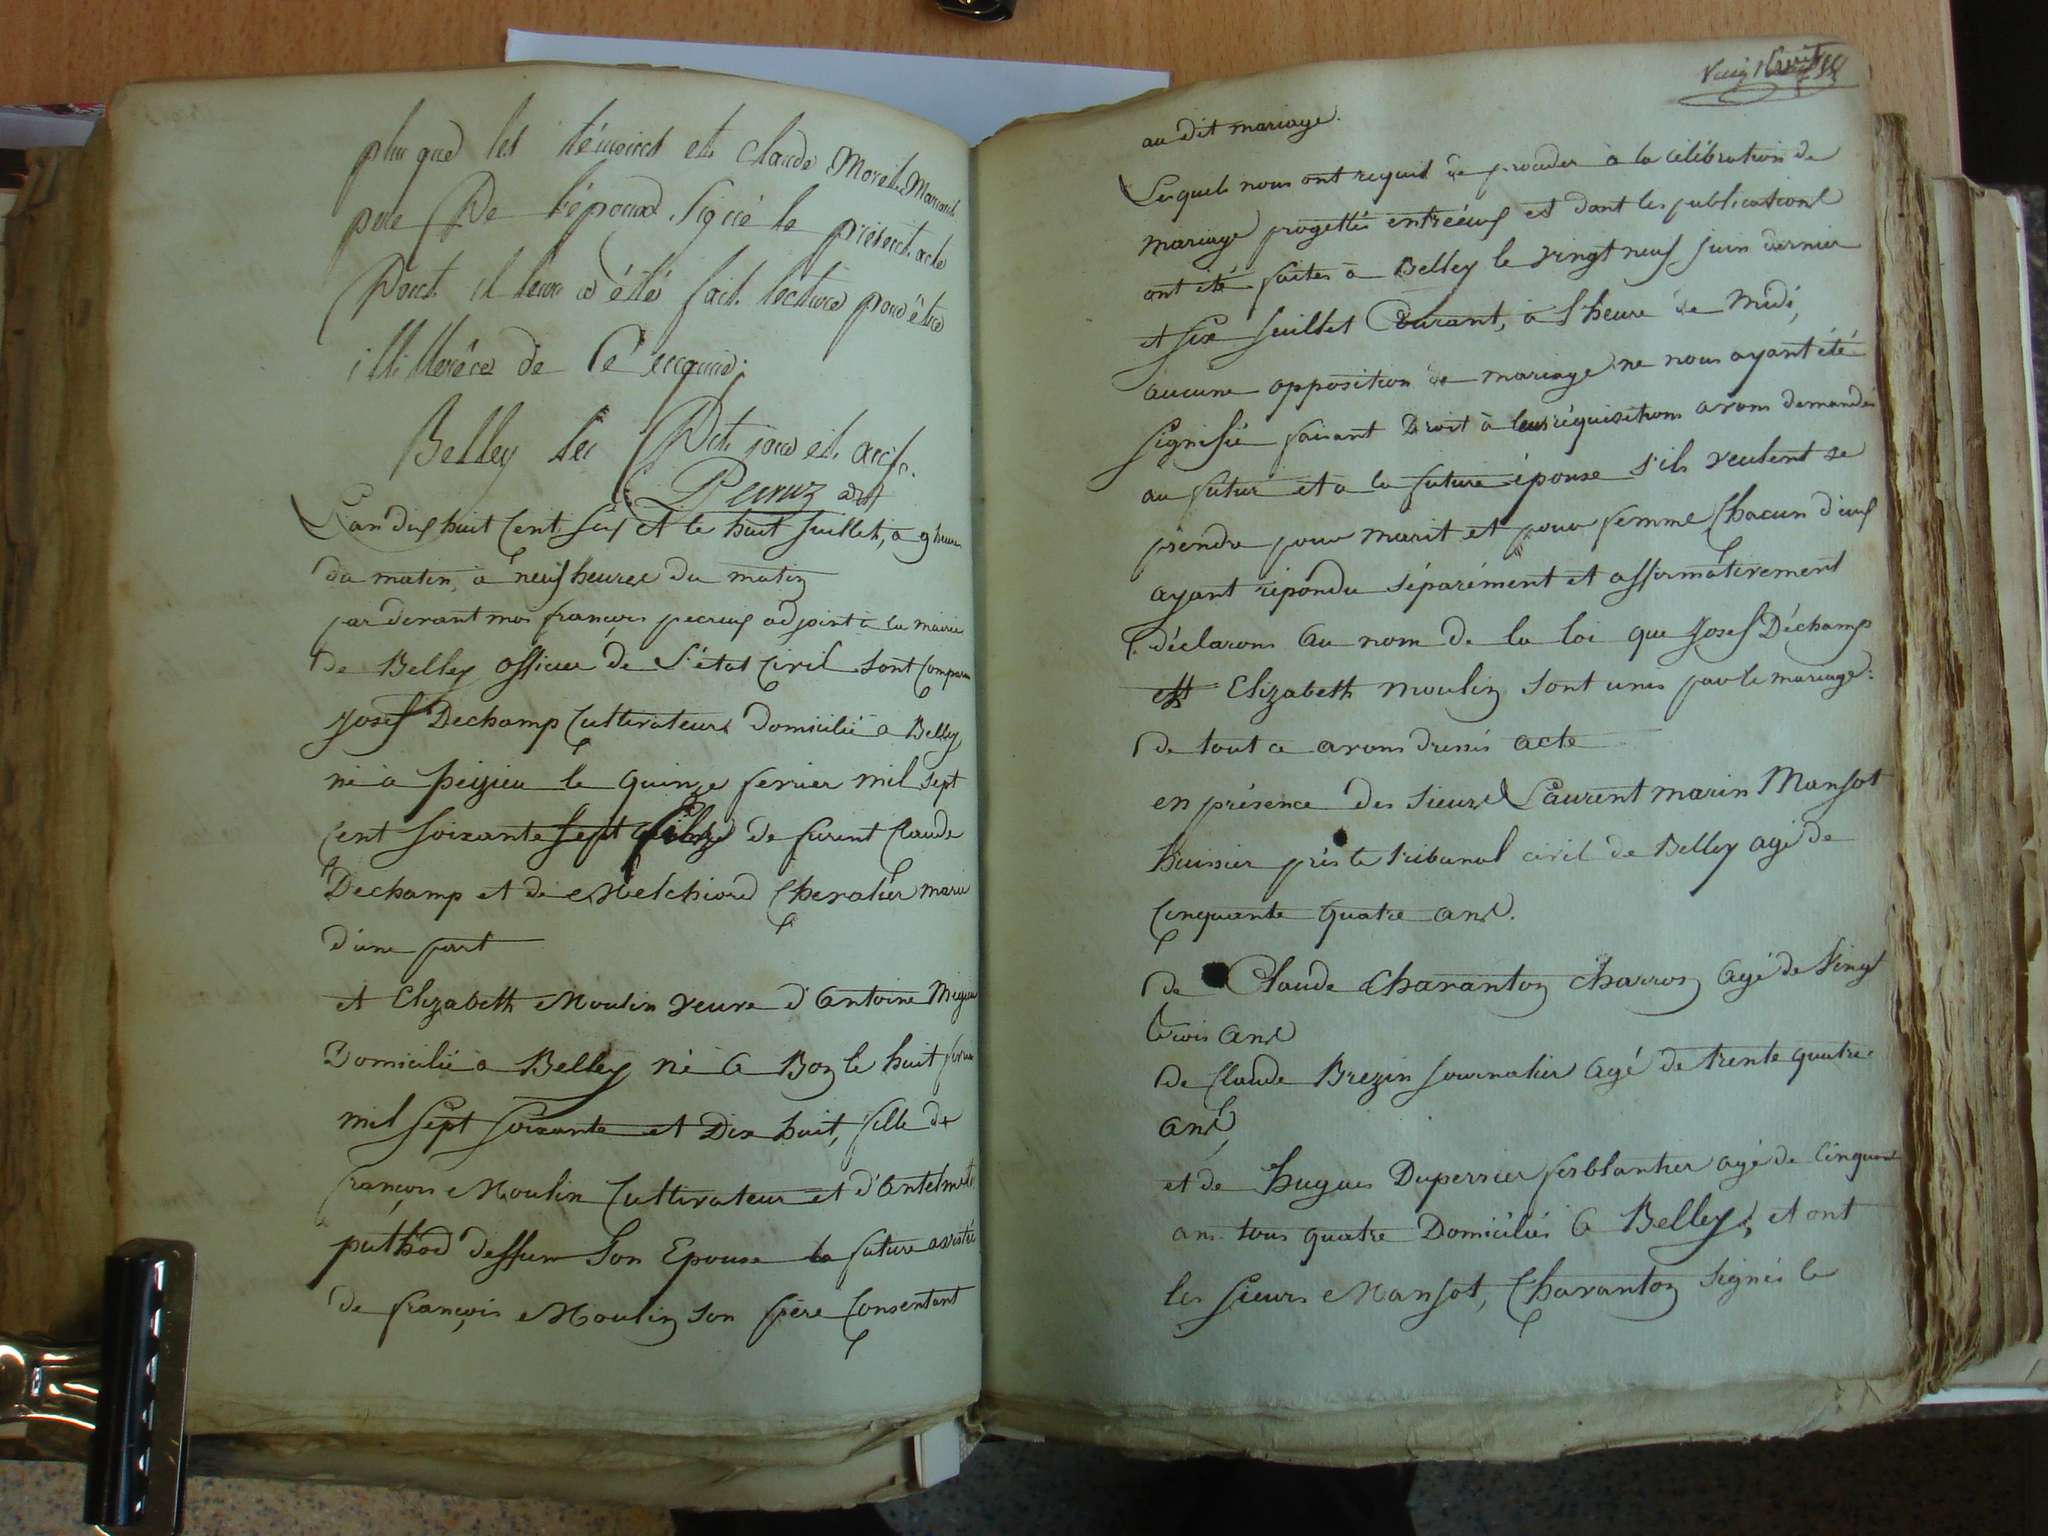 plus que les témoins et Claude Morel Marcand
père De l'époux Signé le présent acte
Dont il leur a été fait lecture pour être
illitterées de ce enquis.
Belley les Dit jour et an
Pecruz adjt
L'an dix huit Cent six et le huit Juillet, a 9 heures
du matin, à neuf heures du matin
par devant moi françois pecruz adjoint à la mairie
de Belley officier de l'état Civil sont Comparus
Josef Dechamp Cultivateur Domicilié a Belley
né à Peizieu le quinze fevrier mil sept
Cent soixante sept fils de furent Claude
Dechamp et de Melchiord Chevalier marié
d'une part
et Elizabeth Moulin veuve d'Antoine Migieu
Domicilié a Belley né a Bon le huit
mil sept soixante et Dix huit, fille de
françois Moulin Cultivateur et d'Antelmette
puthod dessum Son Epouse la future assistée
de françois Moulin son père Consentant
Vingt huit
au dit mariage.
Lesquels nous ont requis de proceder à la célébration de
mariage progettés entréeux et dont les publications
ont été faites à Belley le vingt neuf juin dernier
et six Juillet Courant, à l'heure de midi,
aucune opposition de mariage ne nous ayant été
signifié faisant Droit à leur réquisitions avons demandés
au futur et a la future épouse s'ils veulent se
prendre pour marit et pour femme Chacun d'eux
ayant répondu séparément et affirmativement
déclarons au nom de la loi que Josef Déchamp
et Elizabeth moulin sont unis par le mariage:
de tout ce avons dressés acte
en présence des sieurs Laurent marin Mansot
huissier près le tribunal civil de Belley agé de
Cinquante quatre ans.
de Claude Charanton Charron agé de Vingt
trois ans
de Claude Brezin Journalier agé de trente quatre
ans,
et de hugues Duperrier ferblantier agé de Cinquante
ans tous quatre Domiciliés a Belley, et ont
les sieurs Mansot, Charanton signés le